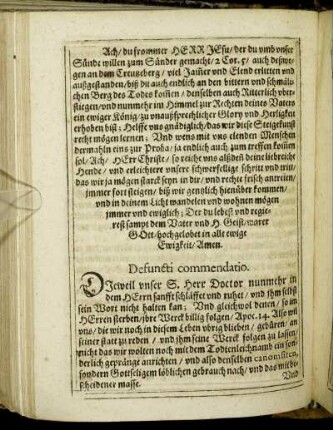 Ach/ du frommer HERR JEsu/ der du vmb vnser
Sünde willen zum Sünder gemacht/ 2 Cor. 5/ auch deßwe-
gen an dem Creutzeberg/ viel Jam̃er vnd Elend erlitten vnd
außgestanden/ biß du auch endlich an den bittern vnd schmäli-
chen Berg des Todes kom̃en/ denselben auch Ritterlich vber-
stiegen/ vnd nunmehr im Himmel zur Rechten deines Vaters
ein ewiger König/ zu vnaußsprechlicher Glory vnd Herligkeit
erhoben bist: Helffe vns gnädiglich/ das wir diese Steigkunst
recht mögen lernen: Vnd wens mit vns elenden Menschen
dermahln eins zur Proba/ ja endlich auch zum treffen kom̃en
sol/ Ach/ HErr Christe/ so reiche vns alßdeñ deine liebreiche
Hende/ vnd erleichtere vnsere schwerfellige schritt vnd tritt/
das wir ja mögen starck seyn in dir/ vnd rechte frisch antreten/
immer fort steigen/ biß wir gentzlich hienüber kommen/
vnd in deinem Licht wandelen vnd wohnen mögen
immer vnd ewiglich; Der du lebest vnd regie-
rest sampt dem Vater vnd H. Geist/ warer
GOtt/ hochgelobet in alle ewige
Ewigkeit/ Amen.
Defuncti commendatio.
DIeweil vnser S. Herr Doctor nunmehr in
dem HErrn sanfft schläffet vnd ruhet/ vnd jhm selbst
sein Wort nicht halten kan; Vnd gleichwol denen/ so im
HErren sterben/ jhre Werck billig folgen/ Apoc. 14. Also wil
vns/ die wir noch in diesem Leben vbrig blieben/ gebüren/ an
seiner statt zu reden/ vnd jhm seine Werck folgen zu lassen/
nicht das wir wolten noch mit dem Todtenleichnam ein son-
derlich gepränge anrichten/ vnd also denselben canonisiren,
sondern Gottseligem löblichen gebrauch nach/ vnd das mit be-
scheidener masse.
Vnd